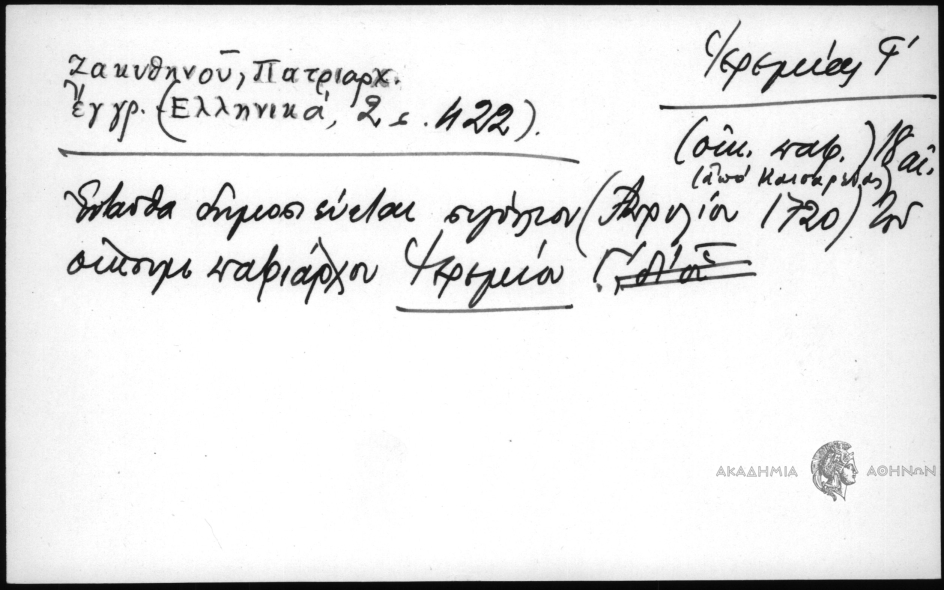 Ζακυθηνοῦ, Πατριαρχ.
ἔγγρ. (Ἑλληνικά, 2 σ. 422).
Ἱερεμίας Γ΄
(οἰκ. πατρ.) 18 αἰ.
(ἀπό Καισαρείας)
Ἐνταῦθα δημοσιεύεται σιγίλλιον (Ἀπριλίου 1720) τοῦ
οἰκουμ πατριάρχου Ἱερεμίου Γ΄
ΑΚΑΔΗΜΙΑ ΑΘΗΝΩΝ